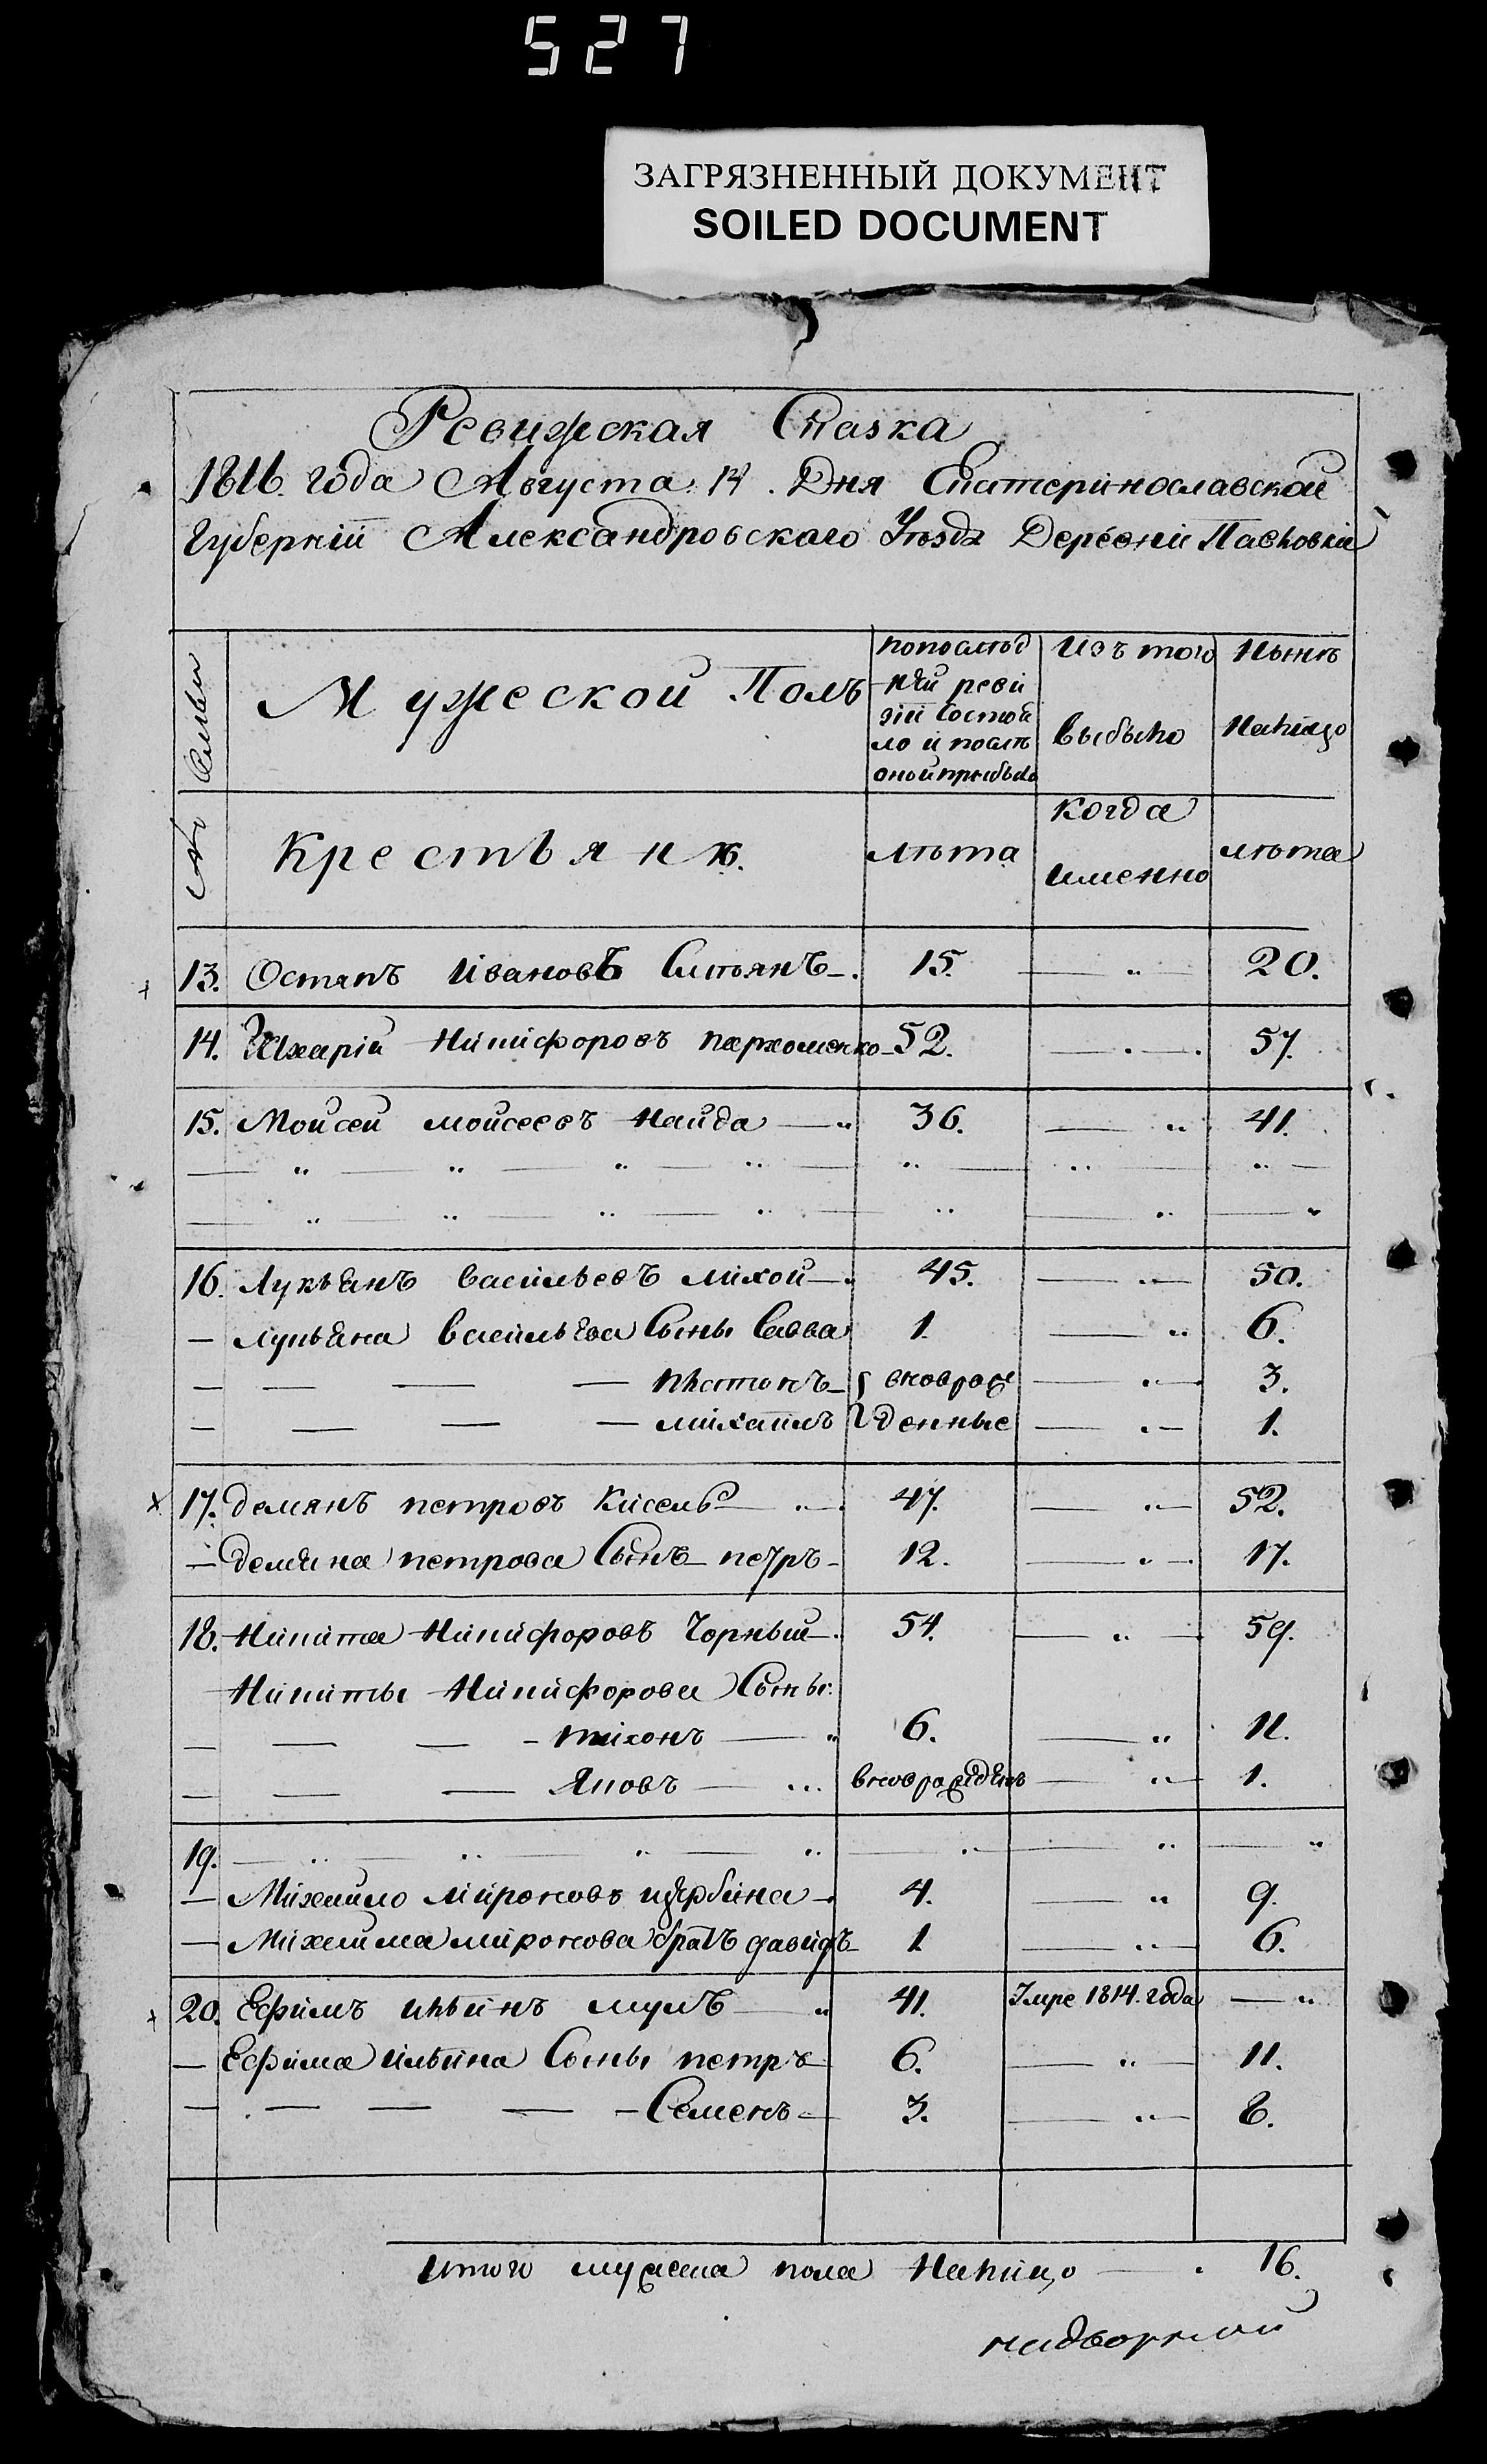 527
ЗАГРЯЗНЕННЫЙ ДОКУМЕНТ
SOILED DOCUMENT
Ревижская Сказка
1816. года Августа 14. Дня Екатеринославской
Губерніи Александровскаго Уезда Деревни Павловки
№ Семьи
Мужеской Полъ
попослѣд ней реви зіи состоя ло и послѣ оной прибыло
Изъ того выбыло
Нынѣ налицо
Крестьянъ.
лѣта
когда именно
лѣта
13. Остапъ Ивановъ Ситьянъ 15. — „ 20.
14. Захарій Никифоровъ пархоменко 52. — . — . 57.
15. Мойсей мойсеевъ Найда — „ 36. — „ 41.
— „ — „ — „ — „ — „ — „ — „ —
— „ — „ — „ — „ — „ — „ — „
16. Лукьянъ васильевъ міхой — . 45. — „ — 50.
— лукьяна васильева Сыны Савва 1. — „ 6.
— — — — платонъ вновро — „ — 3.
— — — — михаилъ жденные — „ — 1.
17. демянъ петровъ Кисель — „ — . 47. — „ — 52.
— демяна петрова Сынъ петръ — 12. — „ — . 17.
18. Никита Никифоровъ Чорный — . 54. — „ — 59.
Никиты Никифорова Сыны:
— — — — тихонъ — „ 6. — „ 11.
— — — Яковъ — ... вноврожденъ — „ — 1.
19. — „ — „ — „ — „ — „ — „ — „
— Михайло мироновъ щербина — . 4. — „ 9.
— Михайла миронова братъ давидъ — 1 — „ — 6.
20. Ефимъ ильинъ мумъ — „ 41. Умре 1814. года — „
— Ефима ильина Сыны петръ — 6. — „ — 11.
— — — — — Семенъ — 3. — „ — 8.
Итого мужеска пола налицо — . 16.
надворной